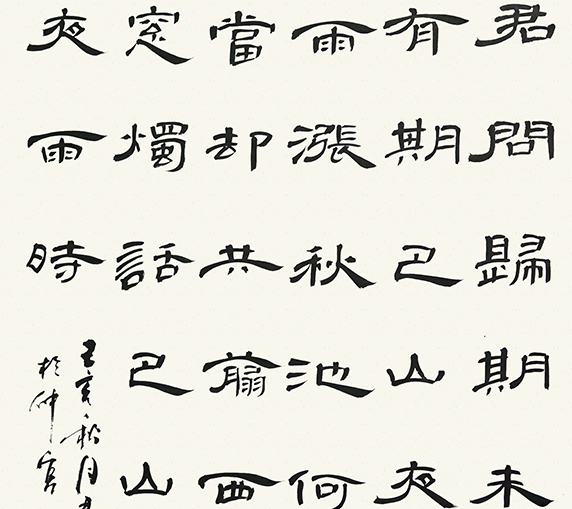 君問歸期未
有期巴山夜
雨漲秋池何
當却共翦西
窗燭話巴山
夜雨時
己亥秋月
於仲宮